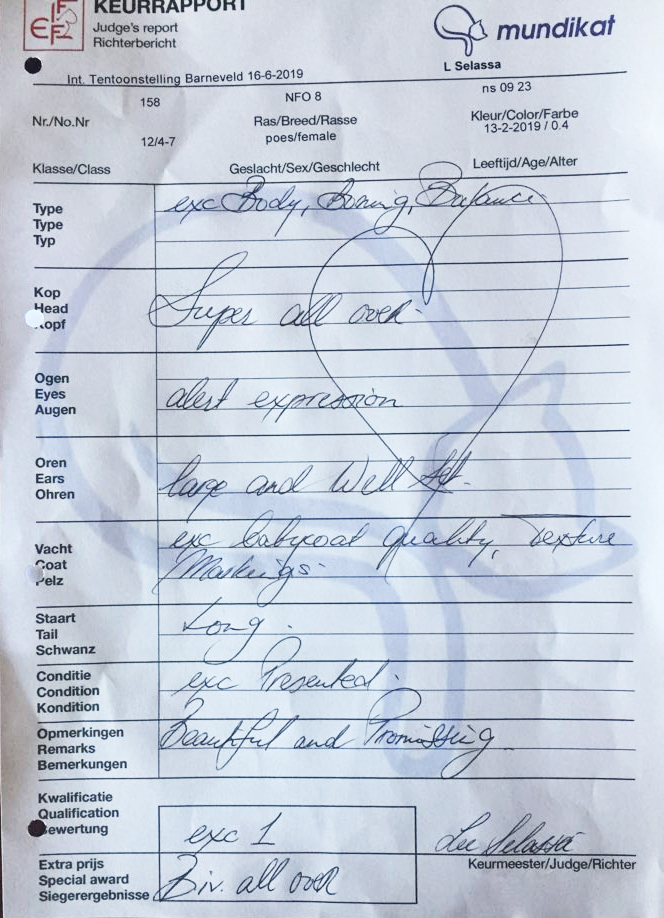 KEURRAPPORT
Judge's report
Richterbericht
mundikat
L Selassa
Int. Tentoonstelling Barneveld 16-6-2019
158 NFO 8 ns 09 23
Nr./No.Nr Ras/Breed/Rasse Kleur/Color/Farbe
12/4-7 poes/female 13-2-2019 / 0.4
Klasse/Class Geslacht/Sex/Geschlecht Leeftijd/Age/Alter
Type exc Body, Boning, Balance
Type
Typ
Kop
Head Super all over.
Kopf
Ogen
Eyes alert expression
Augen
Oren
Ears large and Well Set.
Ohren
Vacht exc babycoat quality, Texture
Coat Markings.
Pelz
Staart
Tail Long.
Schwanz
Conditie
Condition exc Presented.
Kondition
Opmerkingen
Remarks Beautiful and Promissing
Bemerkungen
Kwalificatie
Qualification exc 1
Bewertung Lee Selassa
Extra prijs Keurmeester/Judge/Richter
Special award Biv. all over
Siegerergebnisse